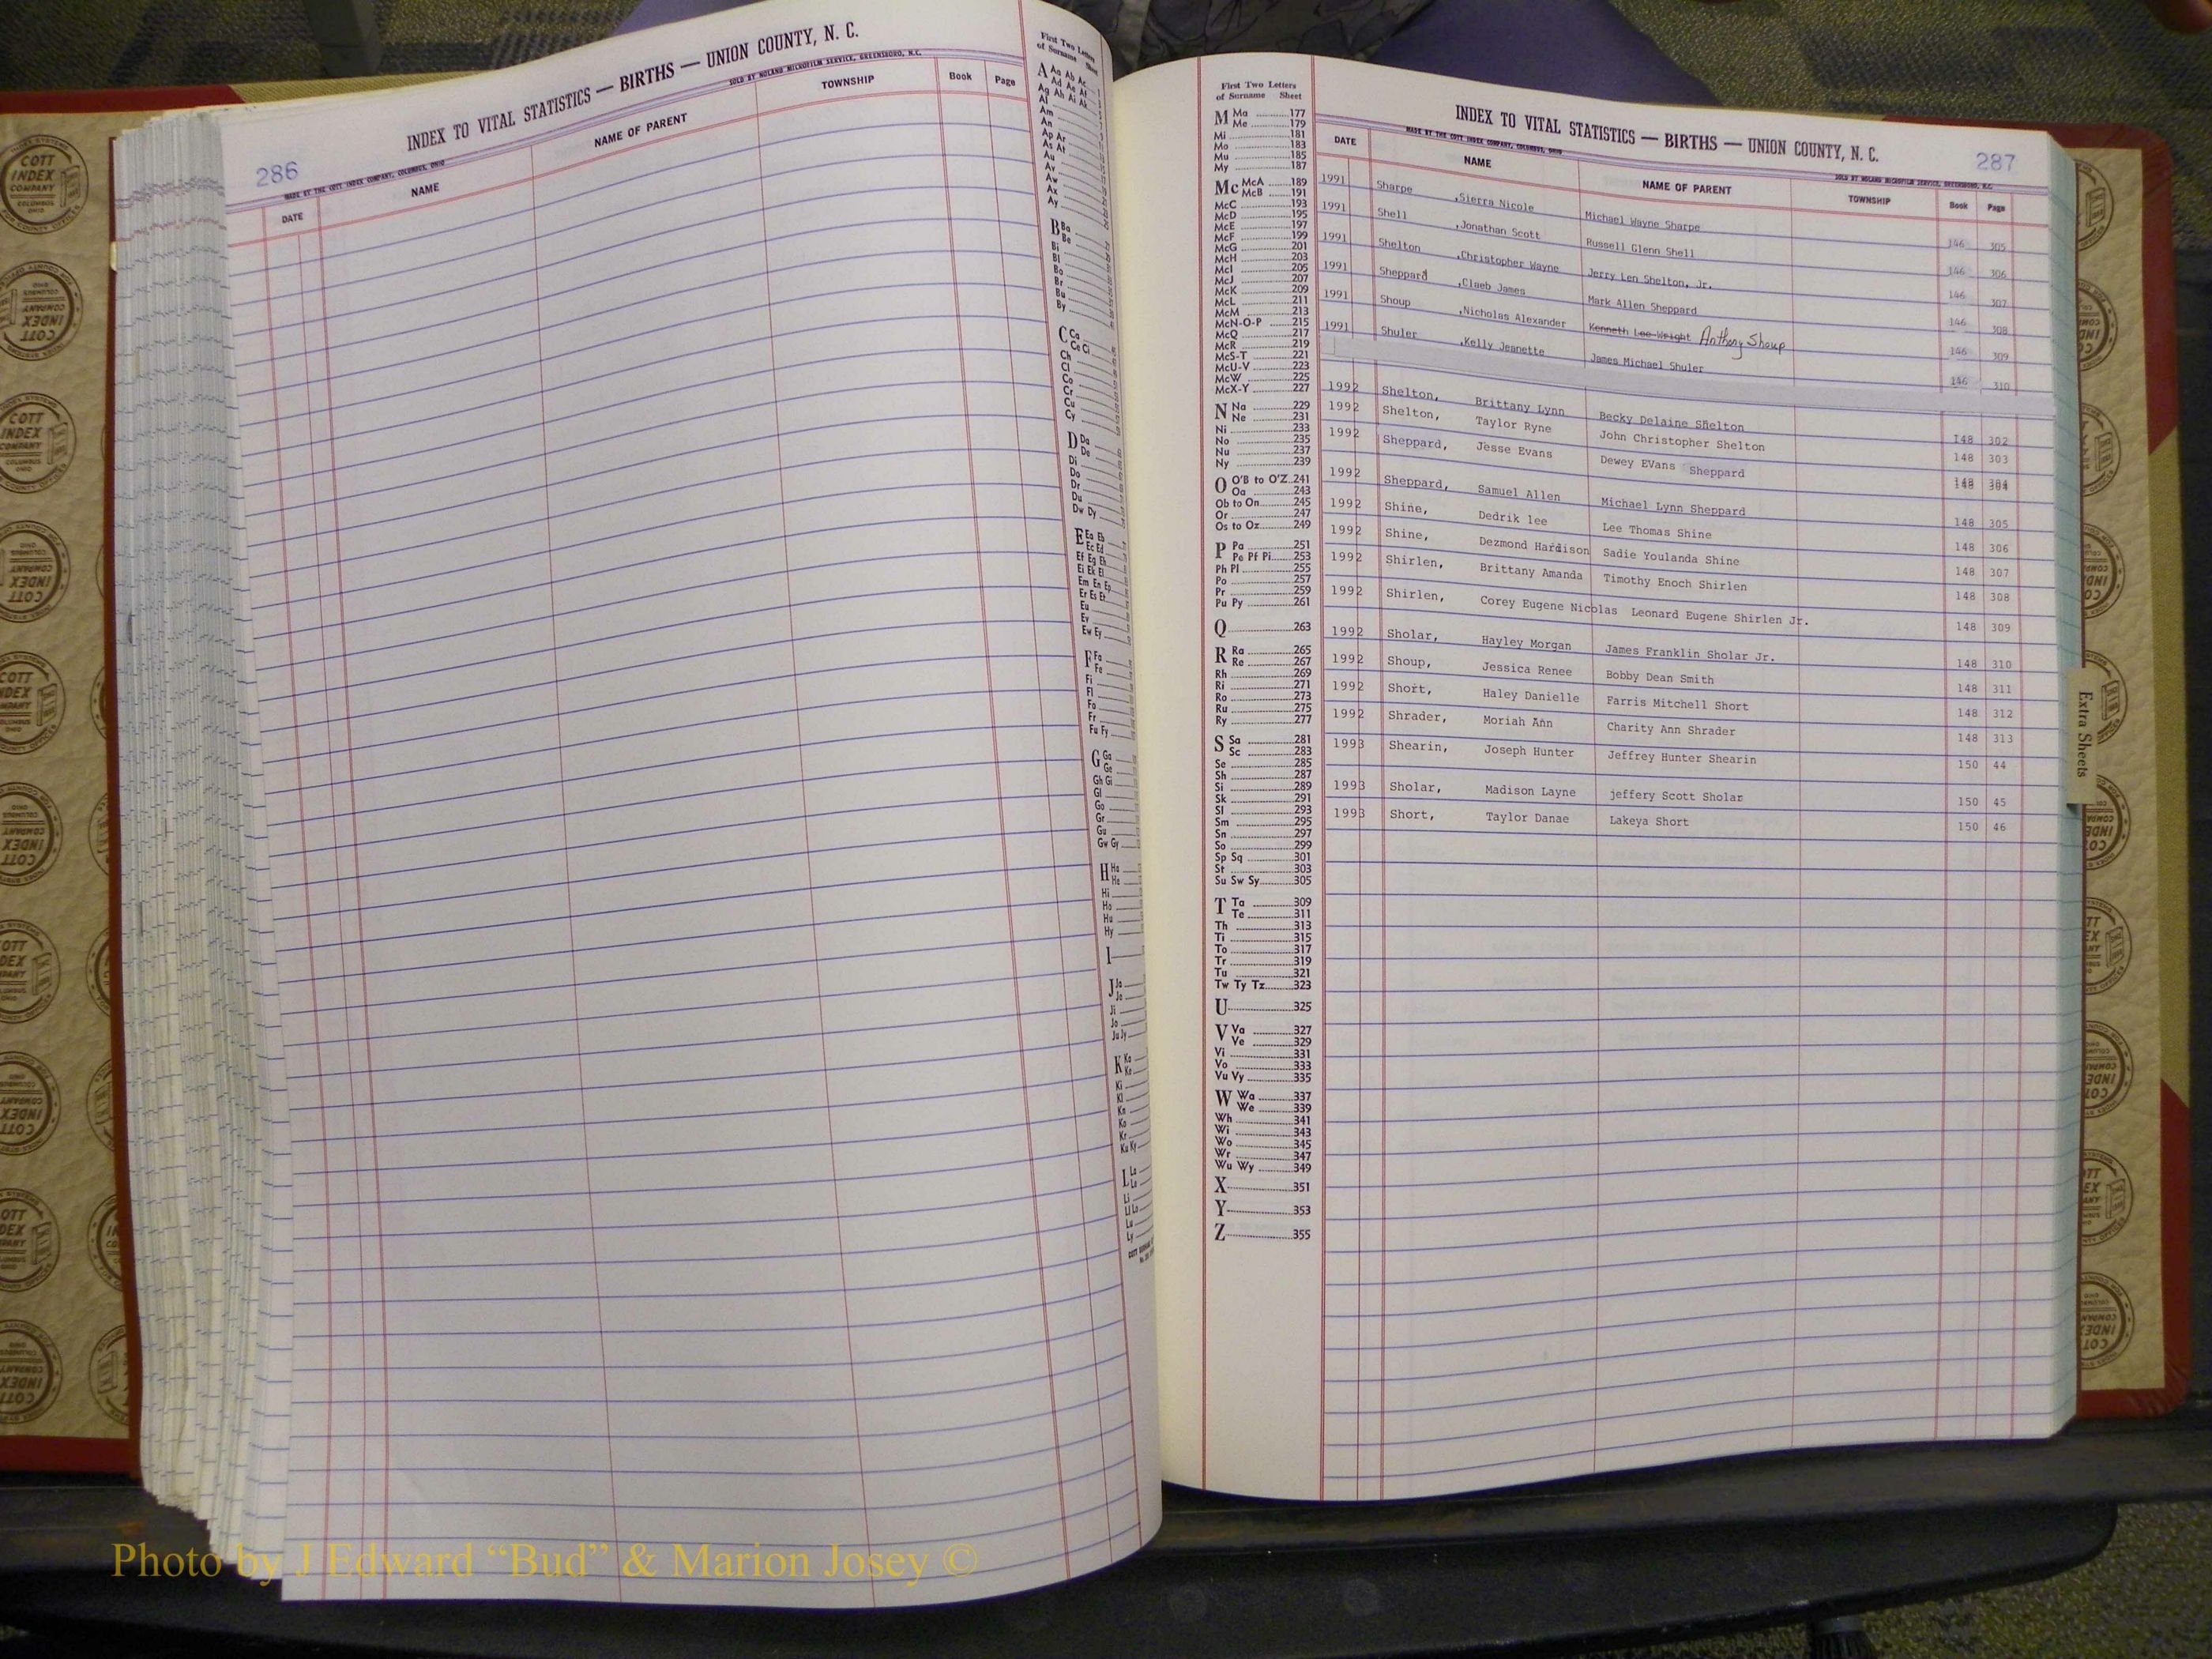 286
INDEX TO VITAL STATISTICS — BIRTHS — UNION COUNTY, N. C.
MADE BY THE COTT INDEX COMPANY, COLUMBUS, OHIO
SOLD BY NOLAND MICROFILM SERVICE, GREENSBORO, N.C.
DATE NAME NAME OF PARENT TOWNSHIP Book Page
First Two Letters
of Surname Sheet
A Aa Ab Ac
Ad Ae Af
Ag Ah Ai Ak
Al
Am
An
Ap Ar
As At
Au
Av
Aw
Ax
Ay
B Ba
Be
Bi
Bl
Bo
Br
Bu
By
C Ca
Ce Ci
Ch
Cl
Co
Cr
Cu
Cy
D Da
De
Di
Do
Dr
Du
Dw Dy
E Ea Eb
Ec Ed
Ef Eg Eh
Ei Ek El
Em En Ep
Er Es Et
Eu
Ev
Ew Ey
F Fa
Fe
Fi
Fl
Fo
Fr
Fu Fy
G Ga
Ge
Gh Gi
Gl
Go
Gr
Gu
Gw Gy
H Ha
He
Hi
Ho
Hu
Hy
I
J Ja
Je
Ji
Jo
Ju Jy
K Ka
Ke
Ki
Kl
Kn
Ko
Kr
Ku Ky
L La
Le
Li
Ll Lo
Lu
Ly
First Two Letters
of Surname Sheet
M Ma 177
Me 179
Mi 181
Mo 183
Mu 185
My 187
Mc McA 189
McB 191
McC 193
McD 195
McE 197
McF 199
McG 201
McH 203
McI 205
McJ 207
McK 209
McL 211
McM 213
McN-O-P 215
McQ 217
McR 219
McS-T 221
McU-V 223
McW 225
McX-Y 227
N Na 229
Ne 231
Ni 233
No 235
Nu 237
Ny 239
O O'B to O'Z 241
Oa 243
Ob to On 245
Or 247
Os to Oz 249
P Pa 251
Pe Pf Pi 253
Ph Pl 255
Po 257
Pr 259
Pu Py 261
Q 263
R Ra 265
Re 267
Rh 269
Ri 271
Ro 273
Ru 275
Ry 277
S Sa 281
Sc 283
Se 285
Sh 287
Si 289
Sk 291
Sl 293
Sm 295
Sn 297
So 299
Sp Sq 301
St 303
Su Sw Sy 305
T Ta 309
Te 311
Th 313
Ti 315
To 317
Tr 319
Tu 321
Tw Ty Tz 323
U 325
V Va 327
Ve 329
Vi 331
Vo 333
Vu Vy 335
W Wa 337
We 339
Wh 341
Wi 343
Wo 345
Wr 347
Wu Wy 349
X 351
Y 353
Z 355
INDEX TO VITAL STATISTICS — BIRTHS — UNION COUNTY, N. C.
287
MADE BY THE COTT INDEX COMPANY, COLUMBUS, OHIO
SOLD BY NOLAND MICROFILM SERVICE, GREENSBORO, N.C.
DATE NAME NAME OF PARENT TOWNSHIP Book Page
1991 Sharpe ,Sierra Nicole Michael Wayne Sharpe 146 305
1991 Shell ,Jonathan Scott Russell Glenn Shell 146 306
1991 Shelton ,Christopher Wayne Jerry Len Shelton, Jr. 146 307
1991 Sheppard ,Claeb James Mark Allen Sheppard 146 308
1991 Shoup ,Nicholas Alexander Kenneth Lee Wright Anthony Shoup 146 309
1991 Shuler ,Kelly Jeanette James Michael Shuler 146 310
1992 Shelton, Brittany Lynn Becky Delaine Shelton 148 302
1992 Shelton, Taylor Ryne John Christopher Shelton 148 303
1992 Sheppard, Jesse Evans Dewey EVans Sheppard 148 304
1992 Sheppard, Samuel Allen Michael Lynn Sheppard 148 305
1992 Shine, Dedrik lee Lee Thomas Shine 148 306
1992 Shine, Dezmond Hardison Sadie Youlanda Shine 148 307
1992 Shirlen, Brittany Amanda Timothy Enoch Shirlen 148 308
1992 Shirlen, Corey Eugene Nicolas Leonard Eugene Shirlen Jr. 148 309
1992 Sholar, Hayley Morgan James Franklin Sholar Jr. 148 310
1992 Shoup, Jessica Renee Bobby Dean Smith 148 311
1992 Short, Haley Danielle Farris Mitchell Short 148 312
1992 Shrader, Moriah Ann Charity Ann Shrader 148 313
1993 Shearin, Joseph Hunter Jeffrey Hunter Shearin 150 44
1993 Sholar, Madison Layne jeffery Scott Sholar 150 45
1993 Short, Taylor Danae Lakeya Short 150 46
Extra Sheets
COTT
INDEX
COMPANY
COLUMBUS
OHIO
Photo by J Edward “Bud” & Marion Josey ©